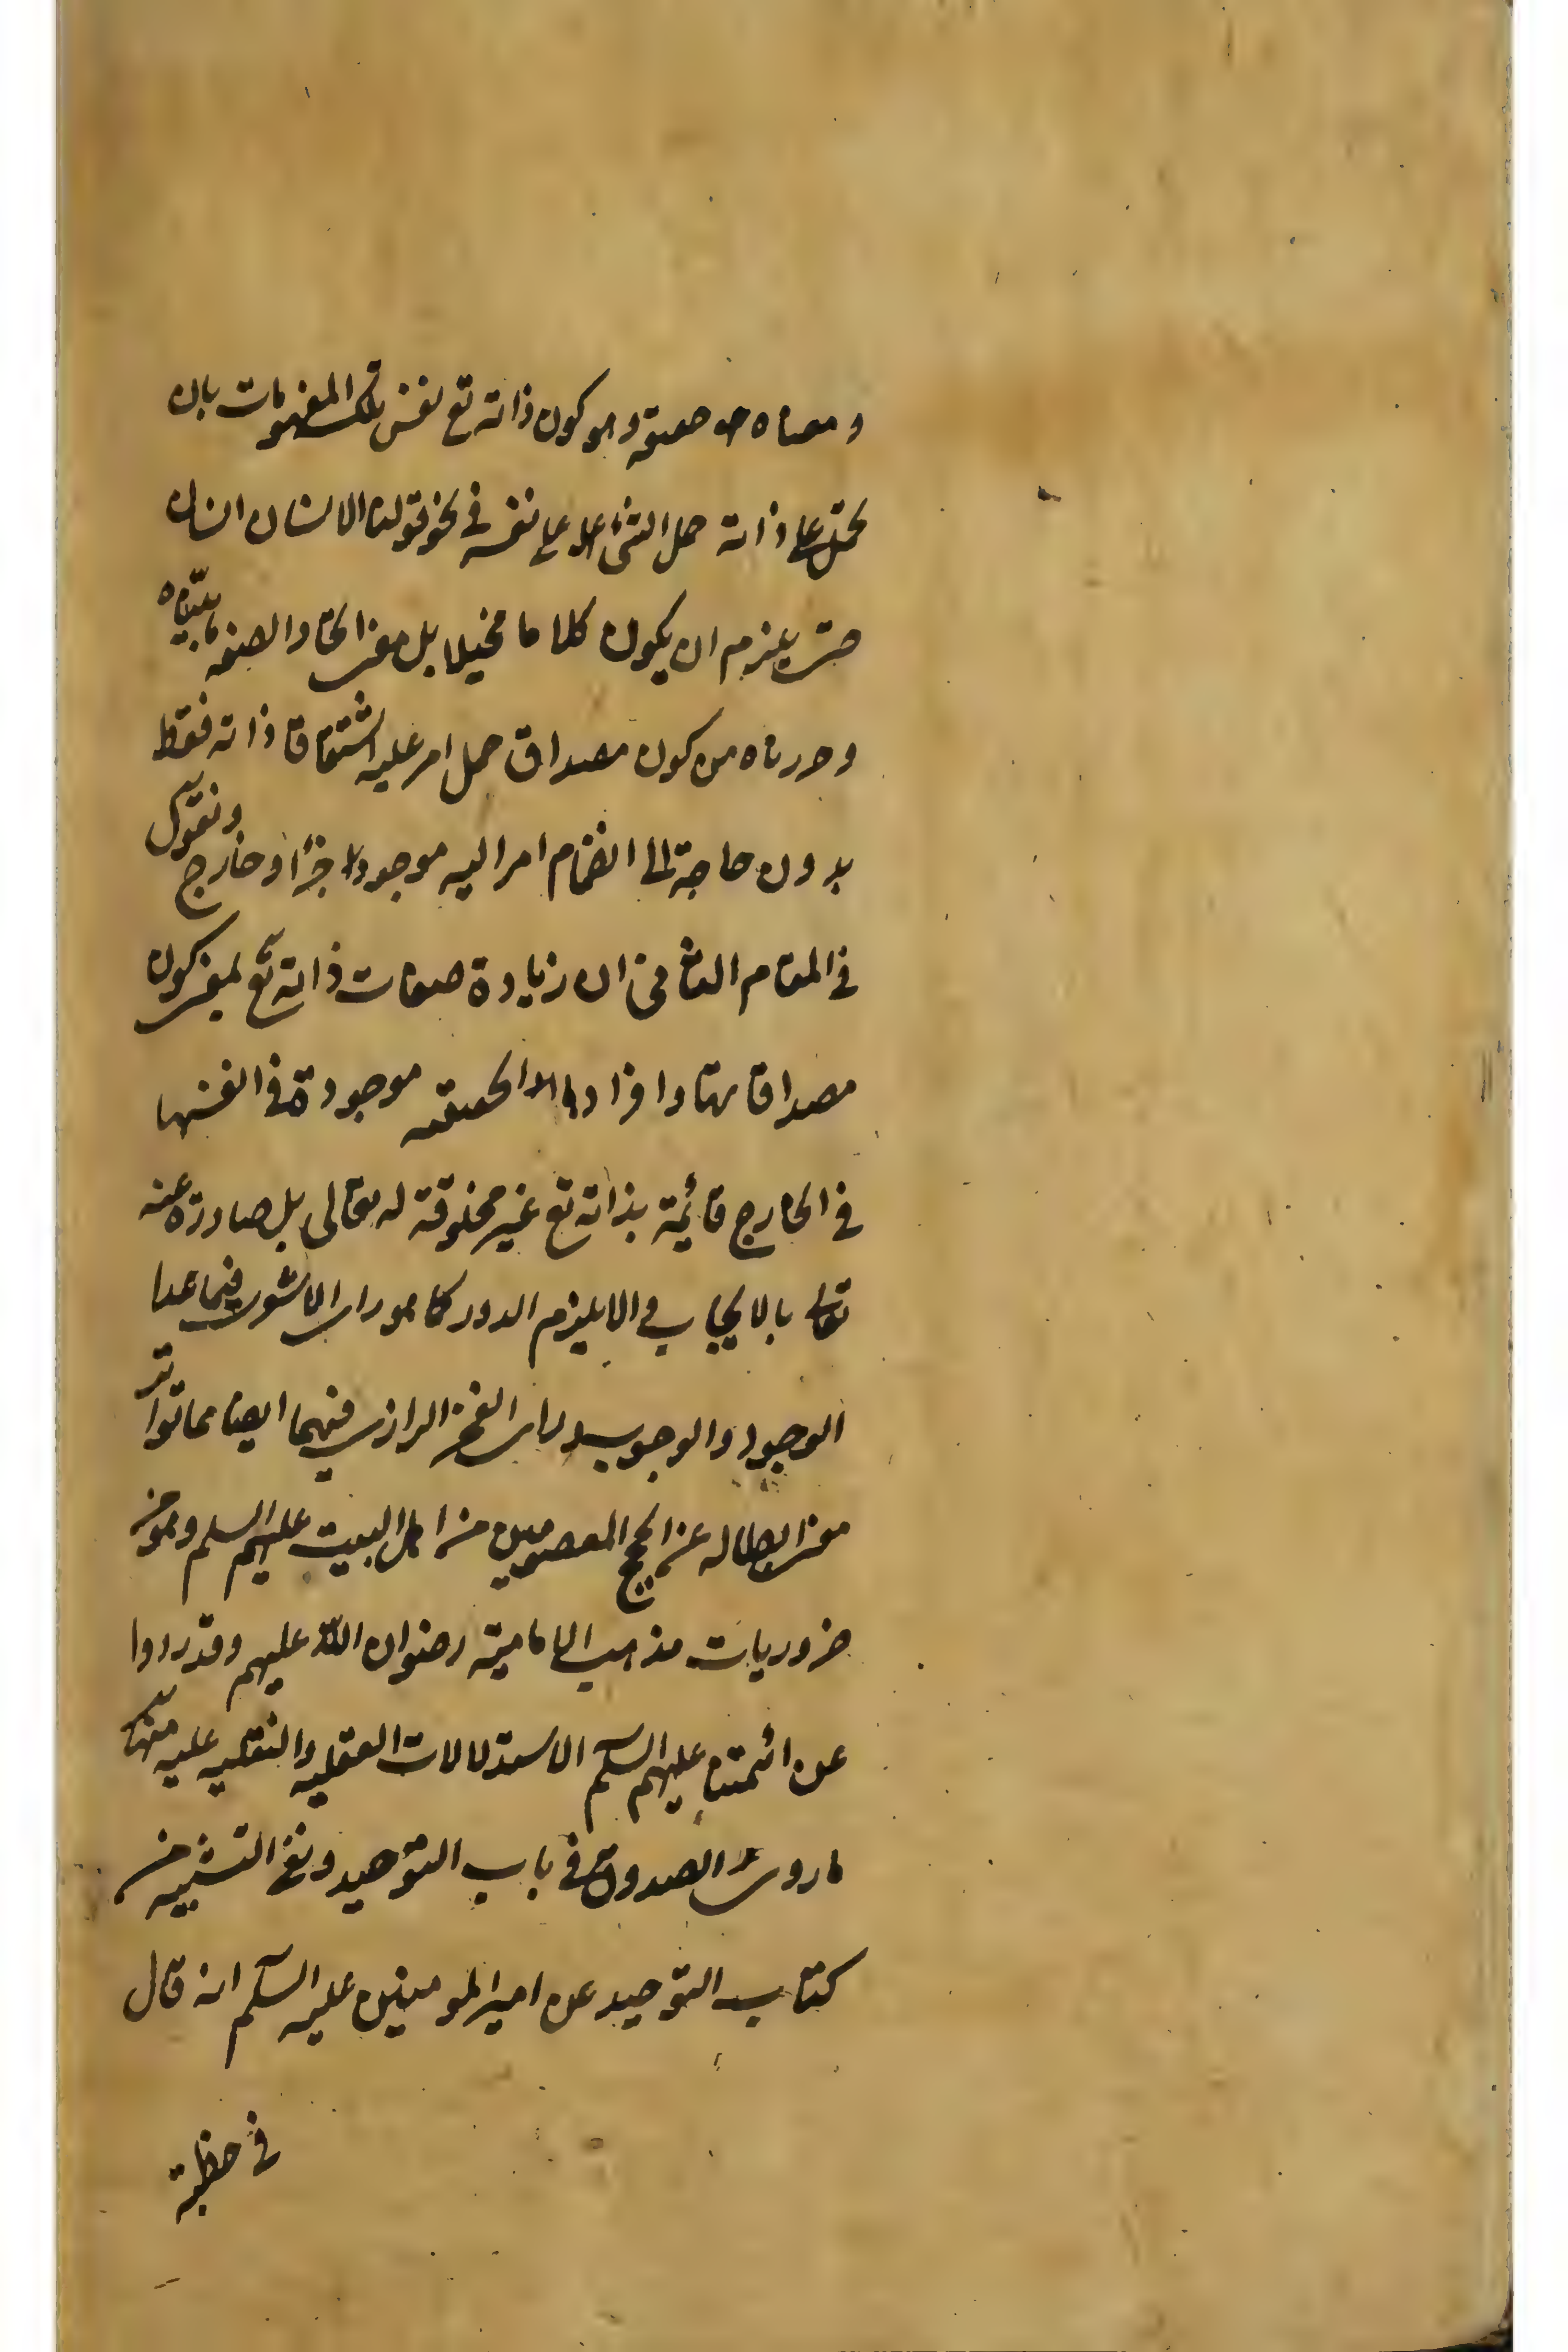 ومعناه حقيقة وهو كون ذاته تع نفس تلك المفهومات بان
يحمل على ذاته حمل الشئ على نفسه فى نحو قولنا الانسان انسان
حتى يلزم ان يكون كلاما مخيلا بل معنى اتحاد الصفة ما بيّناه
وحررناه من كون مصداق حمل امر عليه اشتقاقا ذاته فقط
بدون حاجة الى انضمام امر اليه موجود جزأ او خارج ونقول
فى المقام الثامن ان زيادة صفات ذاته تع بمعنى كون
مصداقاتها وافرادها الحقيقه موجودة فى انفسها
فى الخارج قائمة بذاته تع غير مخلوقة له تعالى بل صادرة عنه
تعالى بالايجاب والا يلزم الدور كما هو راى الاشعرى فيما عدا
الوجود والوجوب وراى الفخر الرازى فيهما ايضا مما تواتر
معنى ابطاله عن الحجج المعصومين من اهل البيت عليهم السلم وهو من
ضروريات مذهب الامامية رضوان الله عليهم وقد رووا
عن ائمتنا عليهم السلم الاستدلالات العقليه والنقليه عليه منها
ما روى الصدوق فى باب التوحيد ونفى التشبيه من
كتاب التوحيد عن امير المومنين عليه السلم انه قال
فى خطبة